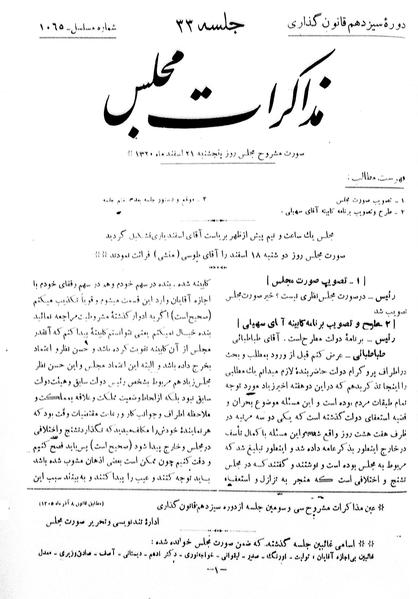 دورهٔ سیزدهم قانون گذاری
جلسه ۳۳
شماره مسلسل - ۱۰۶۵
مذاکرات مجلس
صورت مشروح مجلس روز پنجشنبه ۲۱ اسفند ماه ۱۳۲۰
فهرست مطالب:
۱ - تصویب صورت مجلس
۲ - طرح و تصویب برنامه کابینه آقای سهیلی
۳ - موقع و دستور جلسه بعد، ختم جلسه
مجلس یک ساعت و نیم پیش از ظهر بریاست آقای اسفندیاری تشکیل گردید
صورت مجلس روز دو شنبه ۱۸ اسفند را آقای طوسی (منشی) قرائت نمودند
[ ۱ - تصویب صورت مجلس ]
رئیس - در صورت مجلس نظری نیست؟ خیر صورت مجلس
تصویب شد
[ ۲ - طرح و تصویب برنامه کابینه آقای سهیلی ]
رئیس - برنامهٔ دولت مطرح است. آقای طباطبائی
طباطبائی - عرض کنم قبل از ورود بمطلب و بحث
در اطراف پروگرام دولت حاضر بندهٔ لازم میدانم یک مطلبی
را اینجا تذکر بدهم که در این دو هفته اخیر زیاد مورد توجه
تمام طبقات مردم بوده است و این مسئله موضوع بحران و
قضیه استعفای دولت گذشته است که یکی دو سه مرتبه در
ظرف هفت هشت روز واقع شد، این مسئله با کمال تأسف
در خارج اینطور بد تر عامه داده شد و اینطور تبلیغ شد که
مربوط به مجلس بوده است و نوشتند و گفتند که در مجلس
تشنج و اختلافی است که منجر به تزلزل و استعفاء
کابینه شده، بنده هم در سهم خودم و هم در سهم رفقای خودم با
اجازه آقایان وارد این قسمت میشوم و قویاً تکذیب میکنم
(صحیح است) اگر به ادوار گذشتهٔ مشروطیت مراجعه نمائید
بنده خیال میکنم یعنی نتوانستم کابینهٔ پیدا کنم که آنقدر
مجلس از آن کابینه تقویت کرده باشد و حسن نظر و اعتماد
بخرج داده باشد و البته این اعتماد مجلس و این حسن نظر
مجلس زیاد هم مربوط بشخص رئیس دولت سابق و هیئت دولت
سابق نبود بلکه از لحاظ وضعیت مملکت و علاقه بمملکت و
ملاحظه اطراف و جوانب کار و رعایت مقتضیات وقت بود که
هر نمایندهٔ خودش را مکلف میدید که نگذارد تشنج و اختلافی
در مجلس و خارج پیدا شود (صحیح است) پس باید فصح کنیم
و دقت کنیم چون ممکن است بعضی اذهان مشوب شده باشد
باید توجه کنند و عیب را پیدا کنند و به بینند سبب این
عین مذاکرات مشروح سی و سومین جلسه از دوره سیزدهم قانون گذاری
(مطابق قانون ۸ آذر ماه ۱۳۰۵)
ادارهٔ تند نویسی و تحریر صورت مجلس
اسامی غائبین جلسه گذشته که ضمن صورت مجلس خوانده شده:
غائبین بی اجازه آقایان: تولیت - اورنگ - صفیر - ایلخانی - خواجه نوری - دکتر ادهم - دبستانی - آصف - صادق وزیری - معدل
- ۱ -